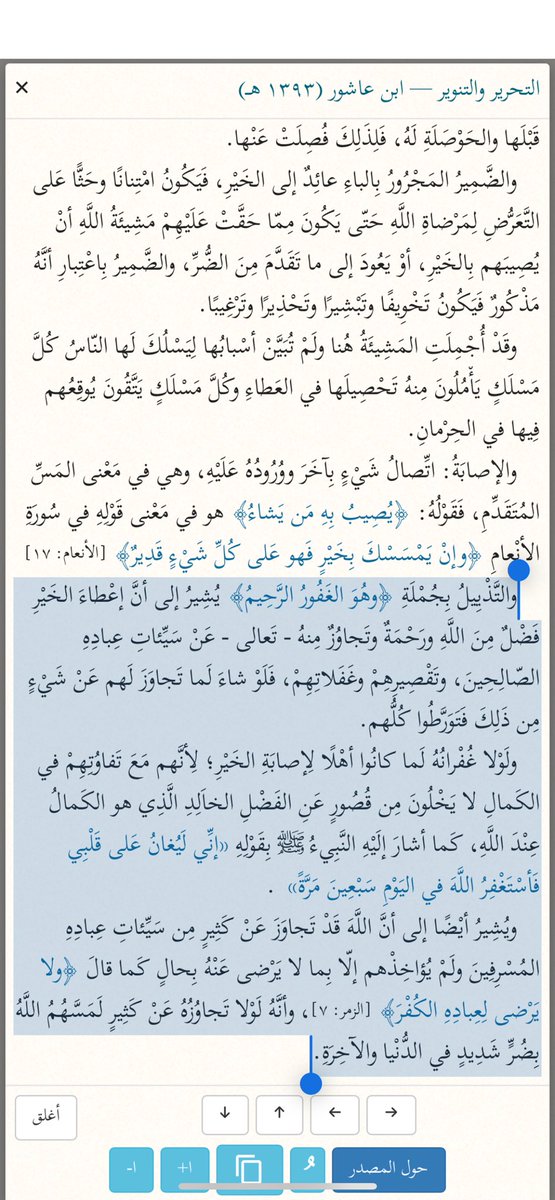 التحرير والتنوير — ابن عاشور (١٣٩٣ هـ)
×
قَبْلَها والحَوْصَلَةِ لَهُ، فَلِذَلِكَ فُصِلَتْ عَنْها.
والضَّمِيرُ المَجْرُورُ بِالباءِ عائِدٌ إلى الخَيْرِ، فَيَكُونُ امْتِنانًا وحَثًّا عَلى
التَّعَرُّضِ لِمَرْضاةِ اللَّهِ حَتّى يَكُونَ مِمّا حَقَّتْ عَلَيْهِمْ مَشِيئَةُ اللَّهِ أنْ
يُصِيبَهم بِالخَيْرِ، أوْ يَعُودَ إلى ما تَقَدَّمَ مِنَ الضُّرِّ، والضَّمِيرُ بِاعْتِبارِ أنَّهُ
مَذْكُورٌ فَيَكُونُ تَخْوِيفًا وتَبْشِيرًا وتَحْذِيرًا وتَرْغِيبًا.
وقَدْ أُجْمِلَتِ المَشِيئَةُ هُنا ولَمْ تُبَيَّنْ أسْبابُها لِيَسْلُكَ لَها النّاسُ كُلَّ
مَسْلَكٍ يَأْمُلُونَ مِنهُ تَحْصِيلَها في العَطاءِ وكُلَّ مَسْلَكٍ يَتَّقُونَ يُوقِعُهم
فِيها في الحِرْمانِ.
والإصابَةُ: اتِّصالُ شَيْءٍ بِآخَرَ ووُرُودُهُ عَلَيْهِ، وهي في مَعْنى المَسِّ
المُتَقَدِّمِ، فَقَوْلُهُ: ﴿يُصِيبُ بِهِ مَن يَشاءُ﴾ هو في مَعْنى قَوْلِهِ في سُورَةِ
الأنْعامِ ﴿وإنْ يَمْسَسْكَ بِخَيْرٍ فَهو عَلى كُلِّ شَيْءٍ قَدِيرٌ﴾ [الأنعام: ١٧]
والتَّذْيِيلُ بِجُمْلَةِ ﴿وهُوَ الغَفُورُ الرَّحِيمُ﴾ يُشِيرُ إلى أنَّ إعْطاءَ الخَيْرِ
فَضْلٌ مِنَ اللَّهِ ورَحْمَةٌ وتَجاوُزٌ مِنهُ - تَعالى - عَنْ سَيِّئاتِ عِبادِهِ
الصّالِحِينَ، وتَقْصِيرِهِمْ وغَفَلاتِهِمْ، فَلَوْ شاءَ لَما تَجاوَزَ لَهم عَنْ شَيْءٍ
مِن ذَلِكَ فَتَوَرَّطُوا كُلُّهم.
ولَوْلا غُفْرانُهُ لَما كانُوا أهْلًا لِإصابَةِ الخَيْرِ؛ لِأنَّهم مَعَ تَفاوُتِهِمْ في
الكَمالِ لا يَخْلُونَ مِن قُصُورٍ عَنِ الفَضْلِ الخالِدِ الَّذِي هو الكَمالُ
عِنْدَ اللَّهِ، كَما أشارَ إلَيْهِ النَّبِيءُ ﷺ بِقَوْلِهِ «إنِّي لَيُغانُ عَلى قَلْبِي
فَأسْتَغْفِرُ اللَّهَ في اليَوْمِ سَبْعِينَ مَرَّةً» .
ويُشِيرُ أيْضًا إلى أنَّ اللَّهَ قَدْ تَجاوَزَ عَنْ كَثِيرٍ مِن سَيِّئاتِ عِبادِهِ
المُسْرِفِينَ ولَمْ يُؤاخِذْهم إلّا بِما لا يَرْضى عَنْهُ بِحالٍ كَما قالَ ﴿ولا
يَرْضى لِعِبادِهِ الكُفْرَ﴾ [الزمر: ٧]، وأنَّهُ لَوْلا تَجاوُزُهُ عَنْ كَثِيرٍ لَمَسَّهُمُ اللَّهُ
بِضُرٍّ شَدِيدٍ في الدُّنْيا والآخِرَةِ.
→ ← ↑ ↓ أغلق
حول المصدر ١+ ١-